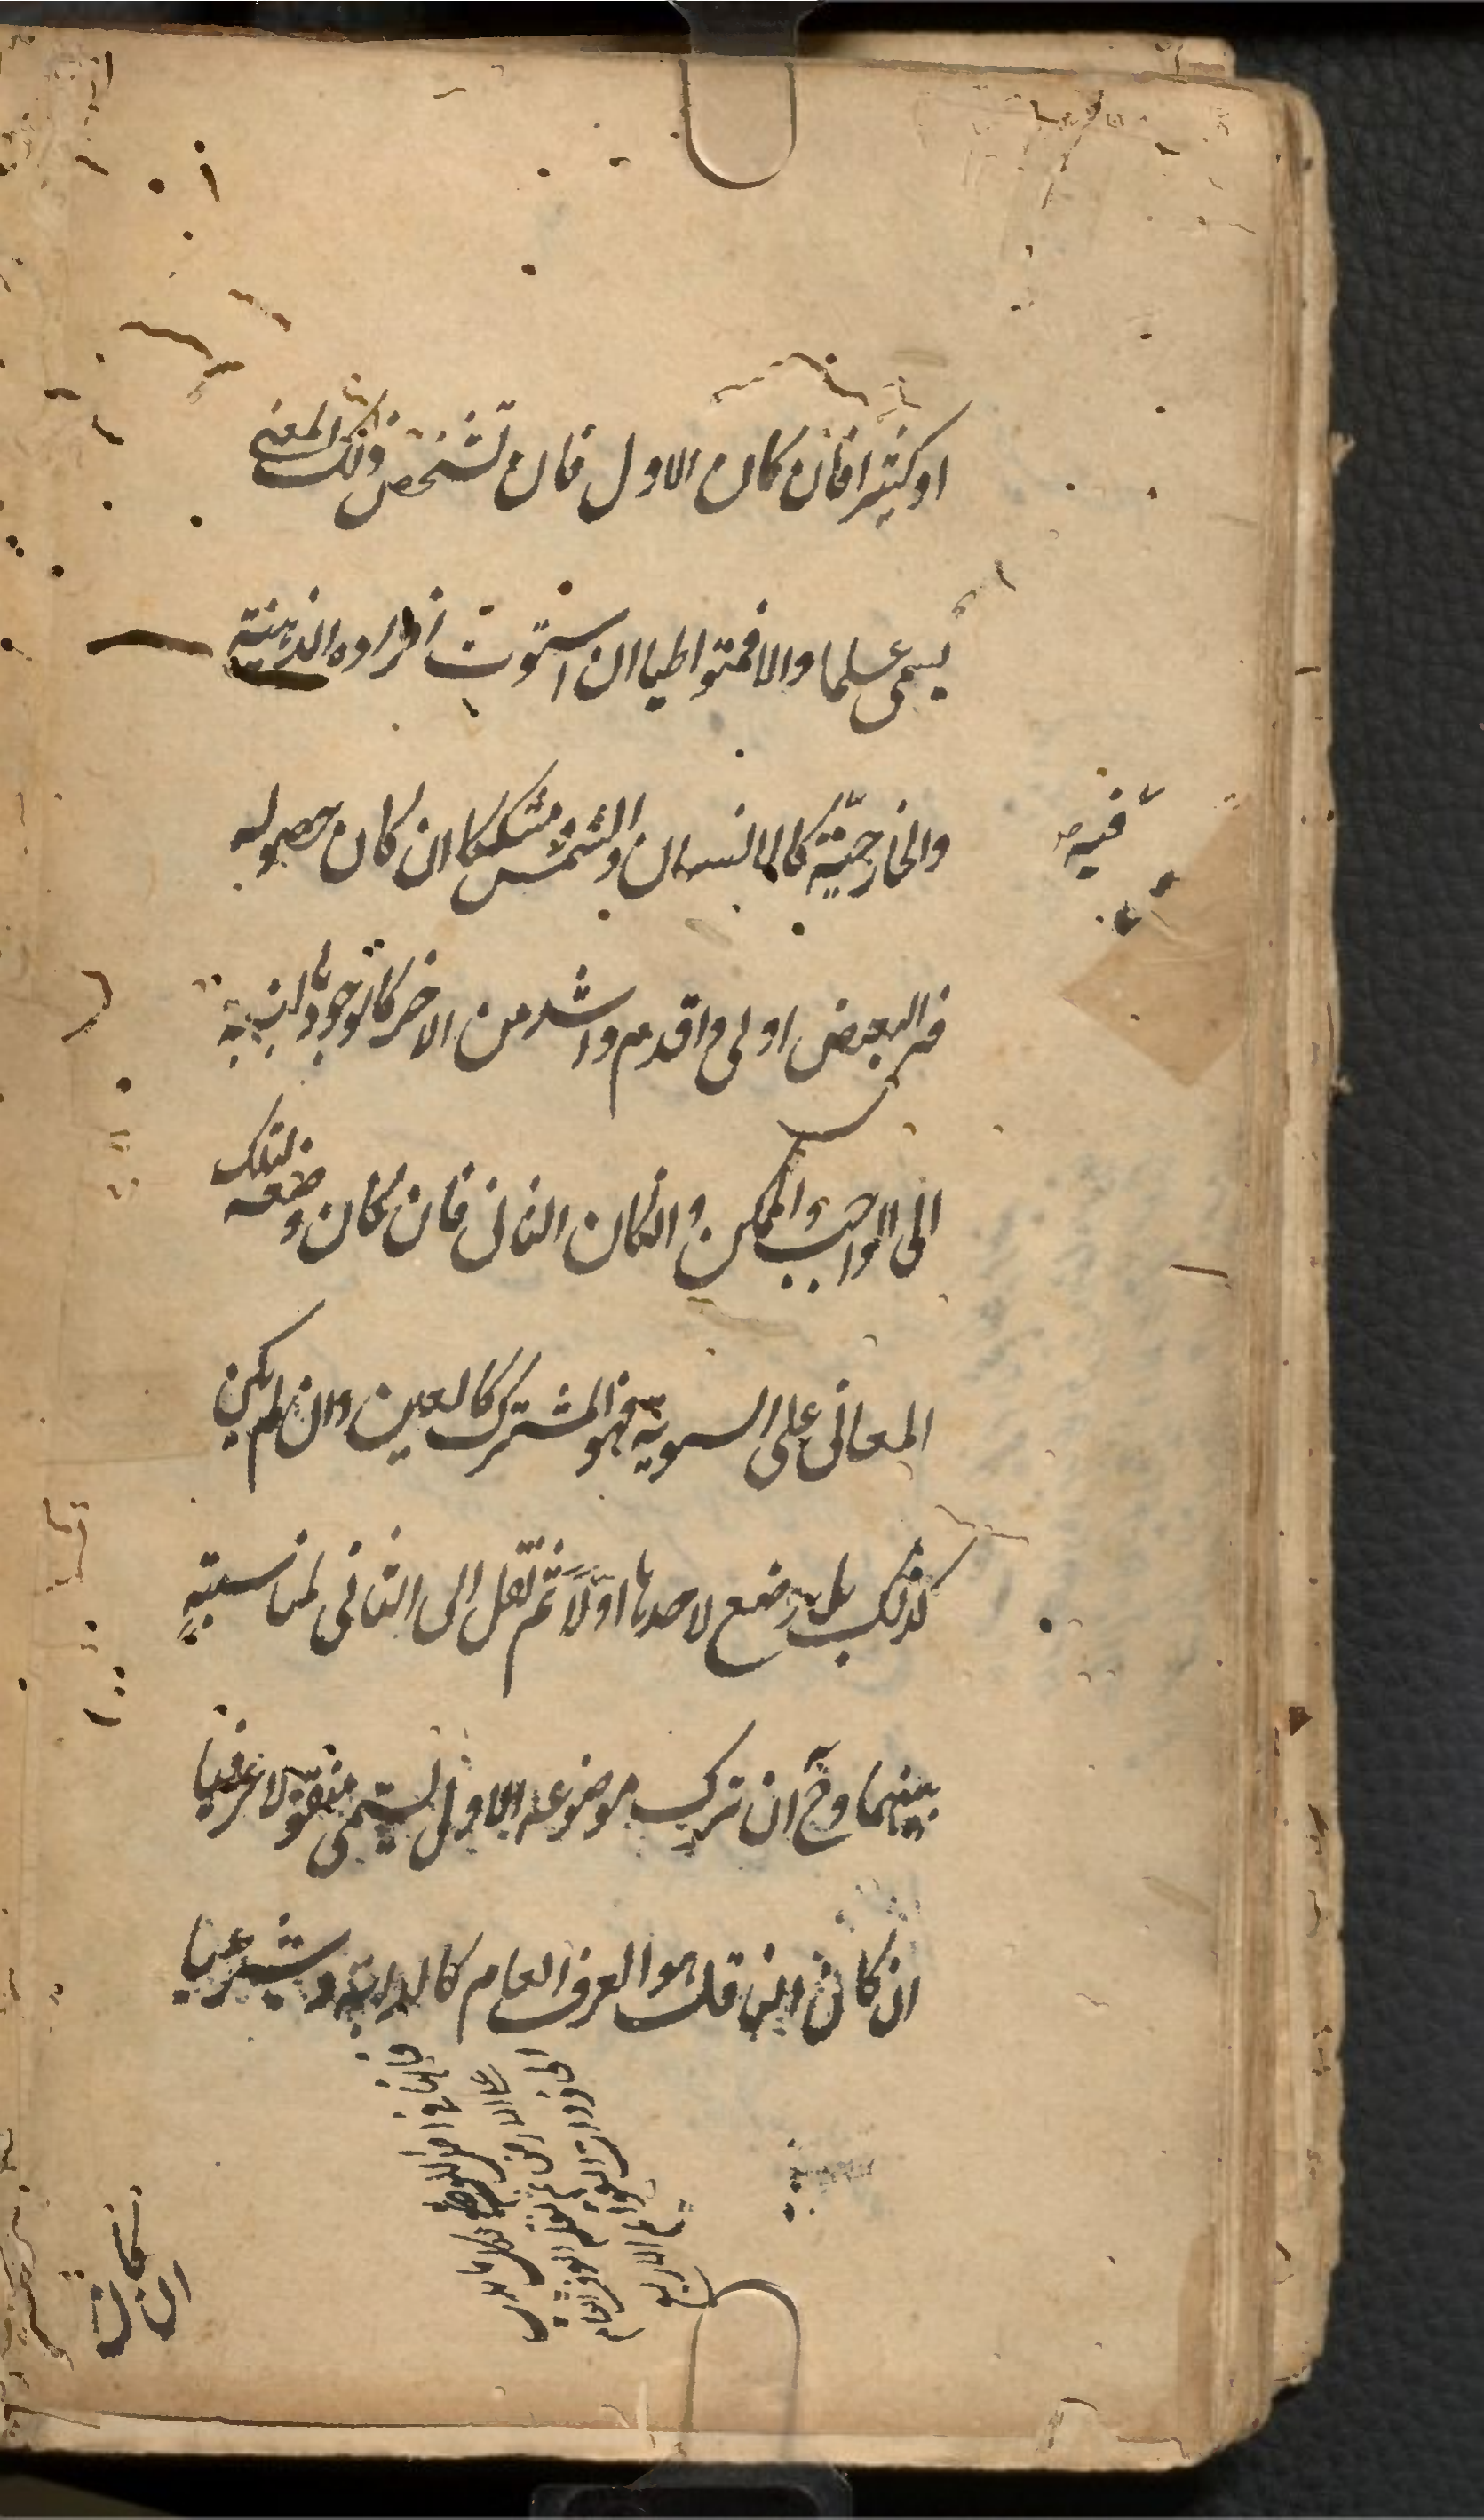 او كثيرا فان كان الاول فان تشخص ذلك المعنى
يسمى علما والا فمتواطيا ان استوت افراده الذهنية
والخارجية كالانسان والشمس ومشككا ان كان حصوله
فيه
فى البعض اولى واقدم واشد من الاخر كالوجود بالنسبة
الى الواجب والممكن وان كان الثانى فان كان وضعه لتلك
المعانى على السوية فهو المشترك كالعين وان لم يكن
كذلك بل وضع لاحدها اولا ثم نقل الى الثانى لمناسبة
بينهما وح ان ترك موضوعه الاول يسمى منقولا عرفيا
ان كان الناقل هو العرف العام كالدابة وشرعيا
فانها فى اصل اللغة
ان كان